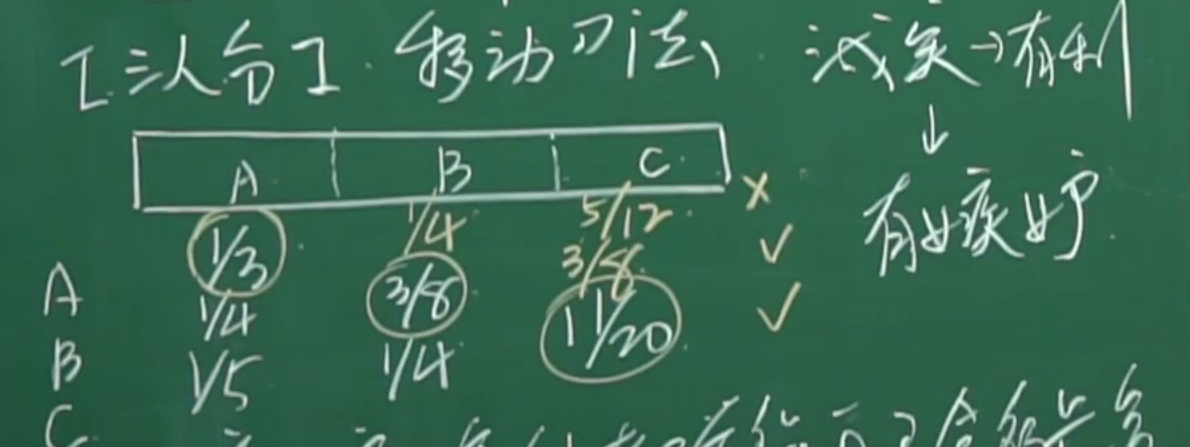 [三人分] 移动刀法 诚实→有利
↓
A B C
有嫉妒
1/3 1/4 5/12 ×
A 1/4 3/8 3/8 ✓
B 1/5 1/4 11/20 ✓
C